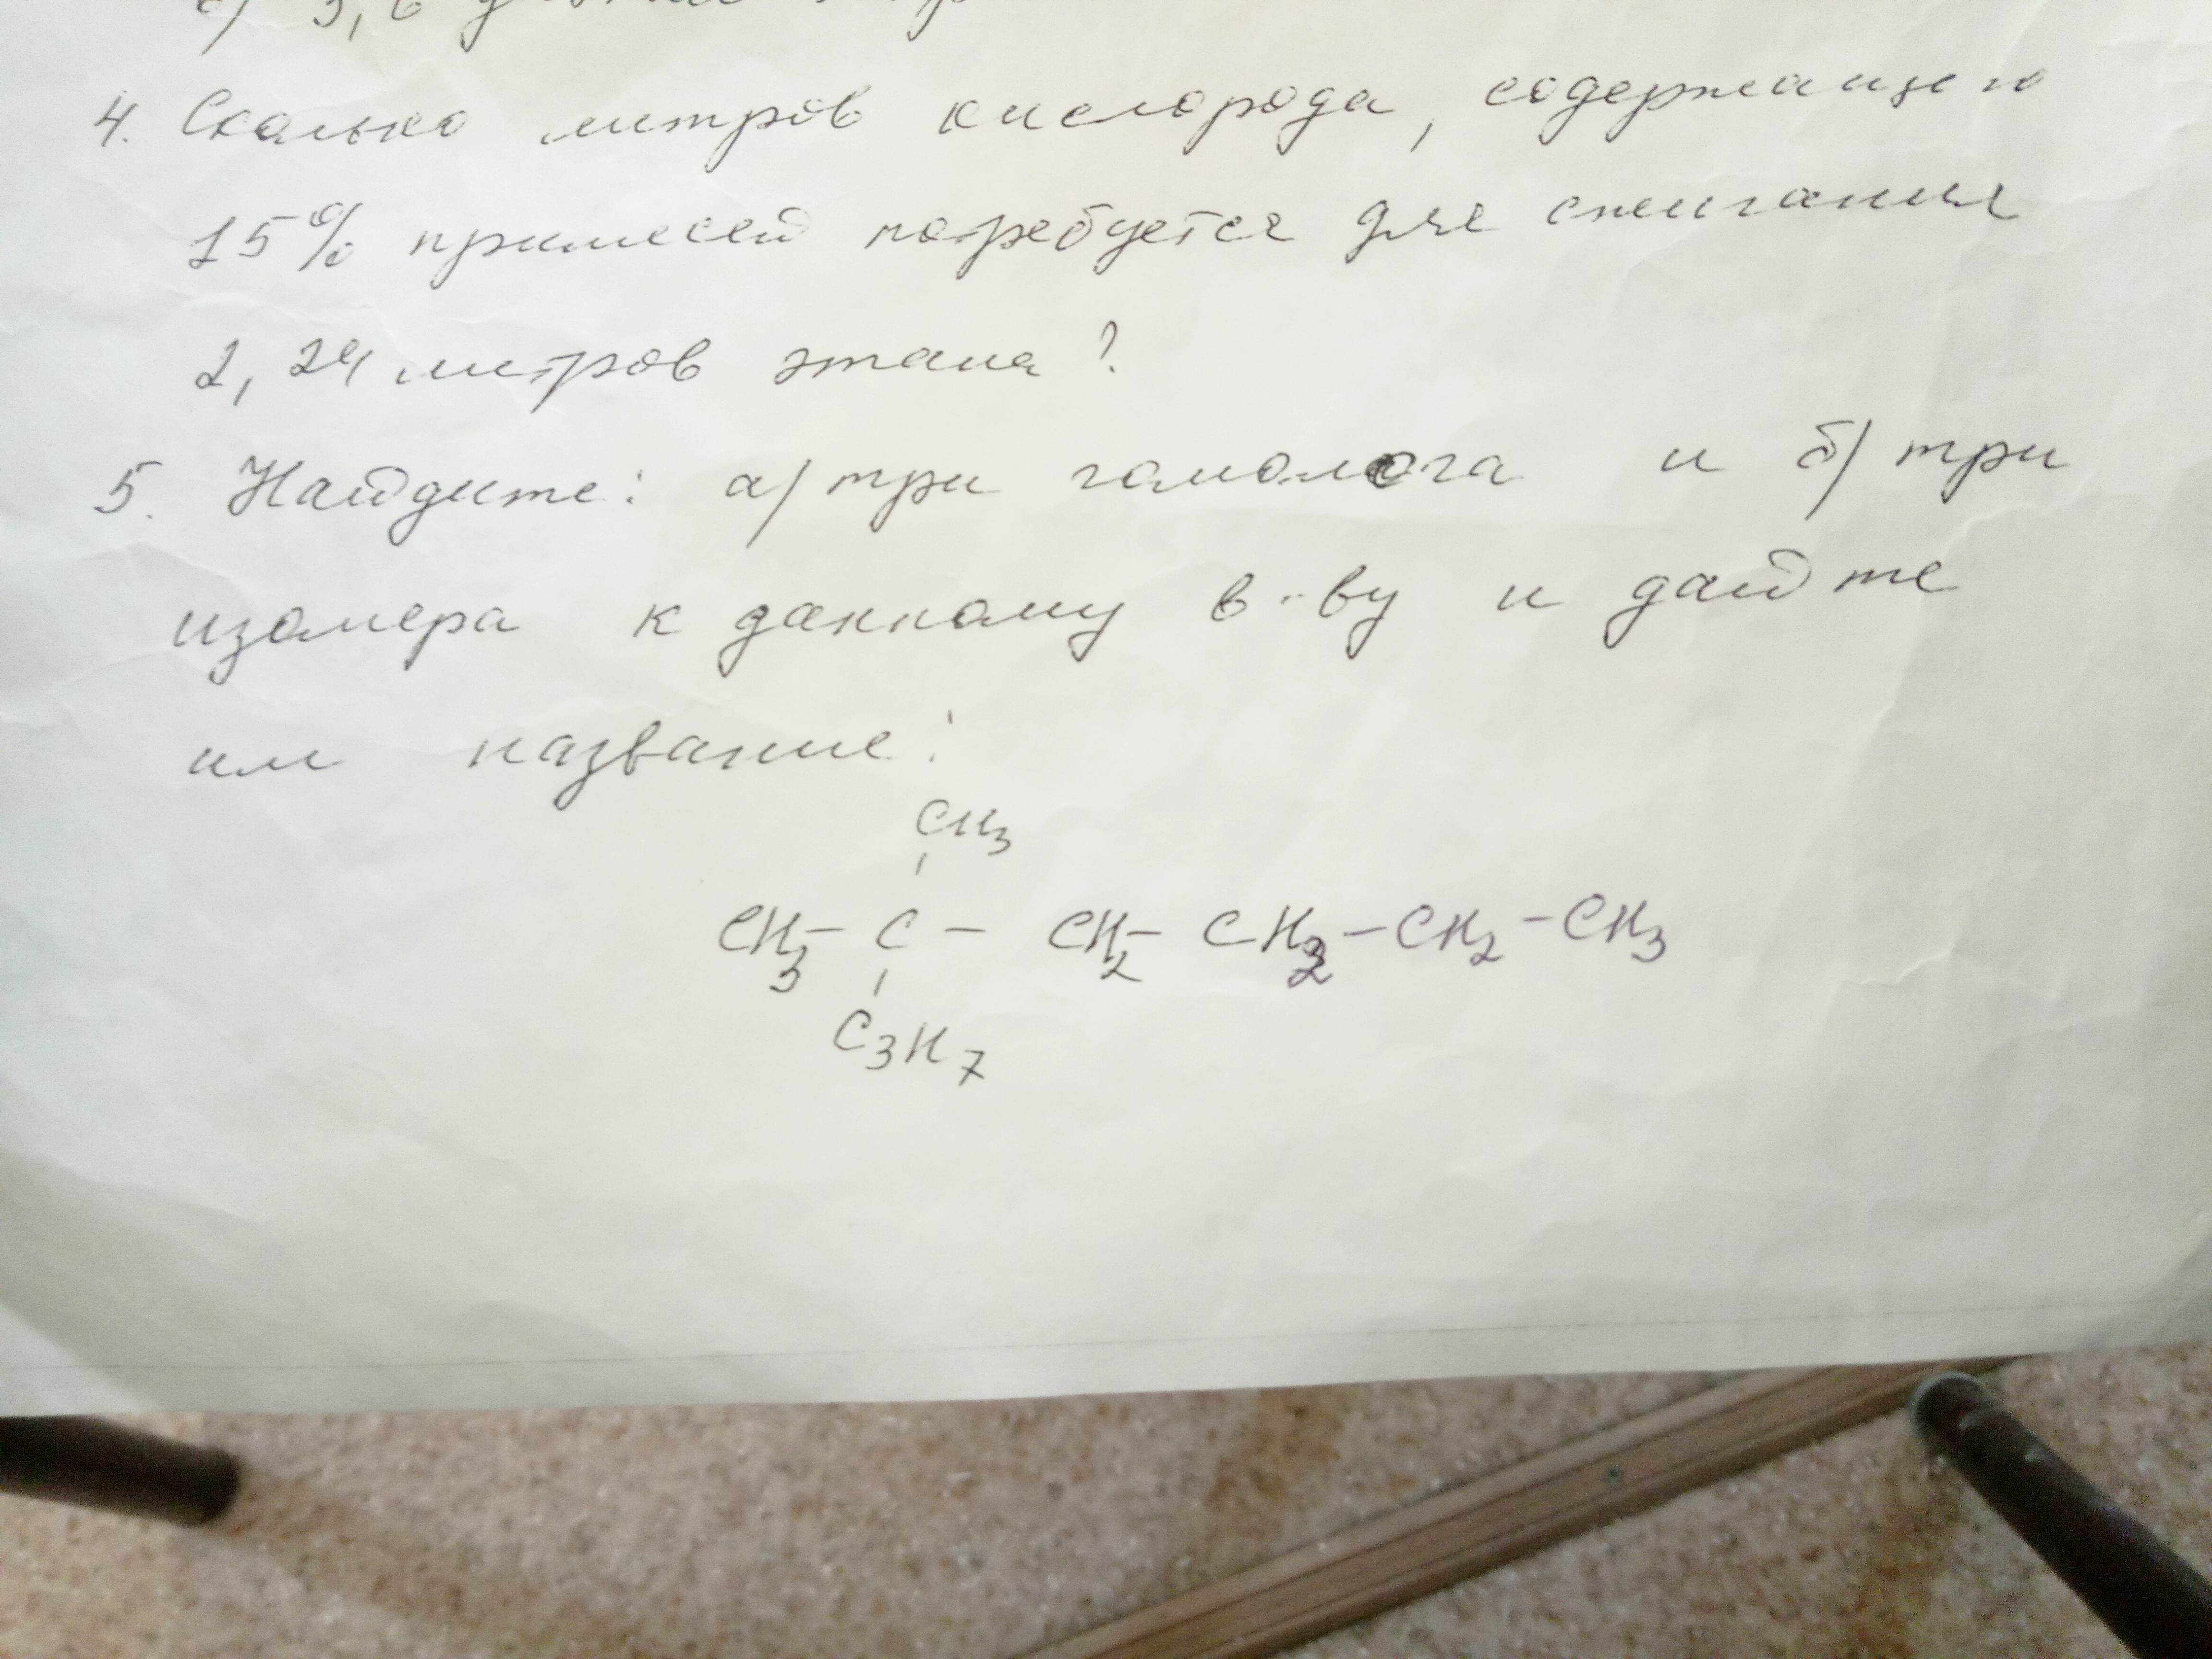 4. Сколько литров кислорода, содержащего
15% примесей потребуется для сжигания
2,24 литров этана?
5. Найдите: а) три гомолога и б) три
изомера к данному в-ву и дайте
им название:
CH3
CH3 - C - CH2 - CH2 - CH2 - CH3
C3H7